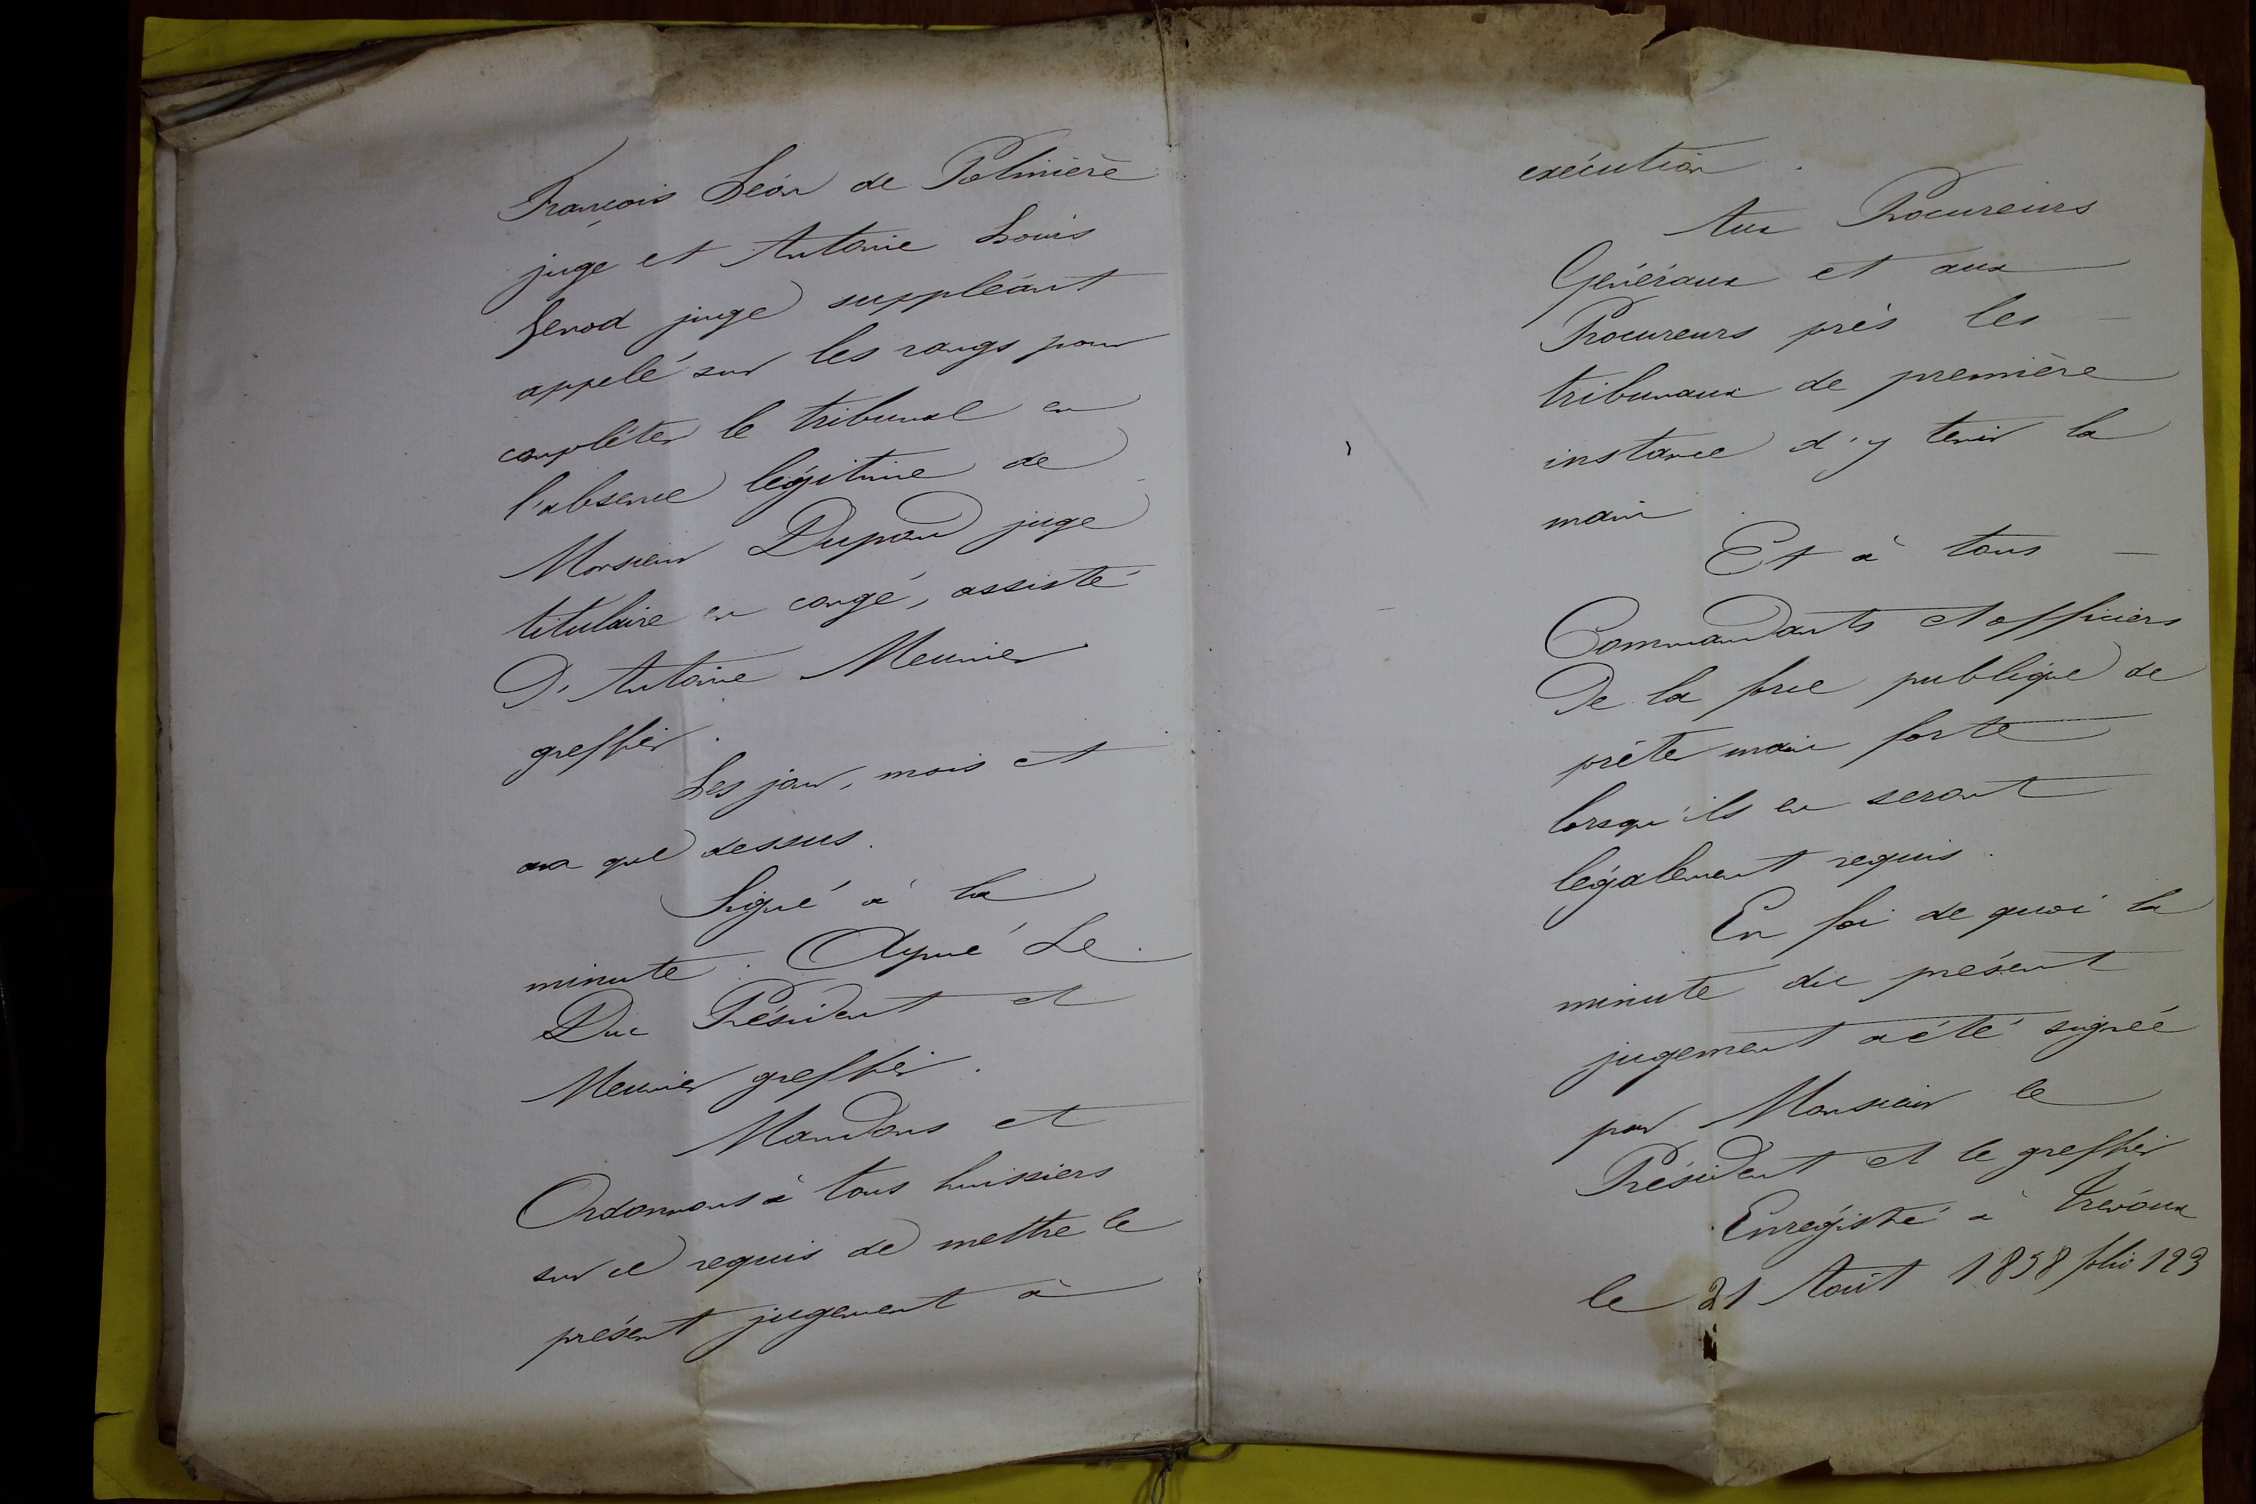 François Léon de Polinière
juge et Antoine Louis
Genod juge suppléant
appelé sur les rangs pour
compléter le tribunal en
l'absence légitime de
Monsieur Dupond juge
titulaire en congé, assisté
D'Antoine Meunier
greffier.
Les jour, mois et
an que dessus.
Signé à la
minute. Aymé Le
Duc Président et
Meunier greffier.
Mandons et
Ordonnons à tous huissiers
sur ce requis de mettre le
présent jugement à
exécution.
Aux Procureurs
Généraux et aux
Procureurs près les
tribunaux de première
instance d'y tenir la
main.
Et à tous
Commandants et officiers
De la force publique de
prêter main forte
lorsqu'ils en seront
légalement requis.
En foi de quoi la
minute du présent
jugement a été signée
par Monsieur le
Président et le greffier
Enregistré à Trévoux
le 21 Août 1858 folio 123